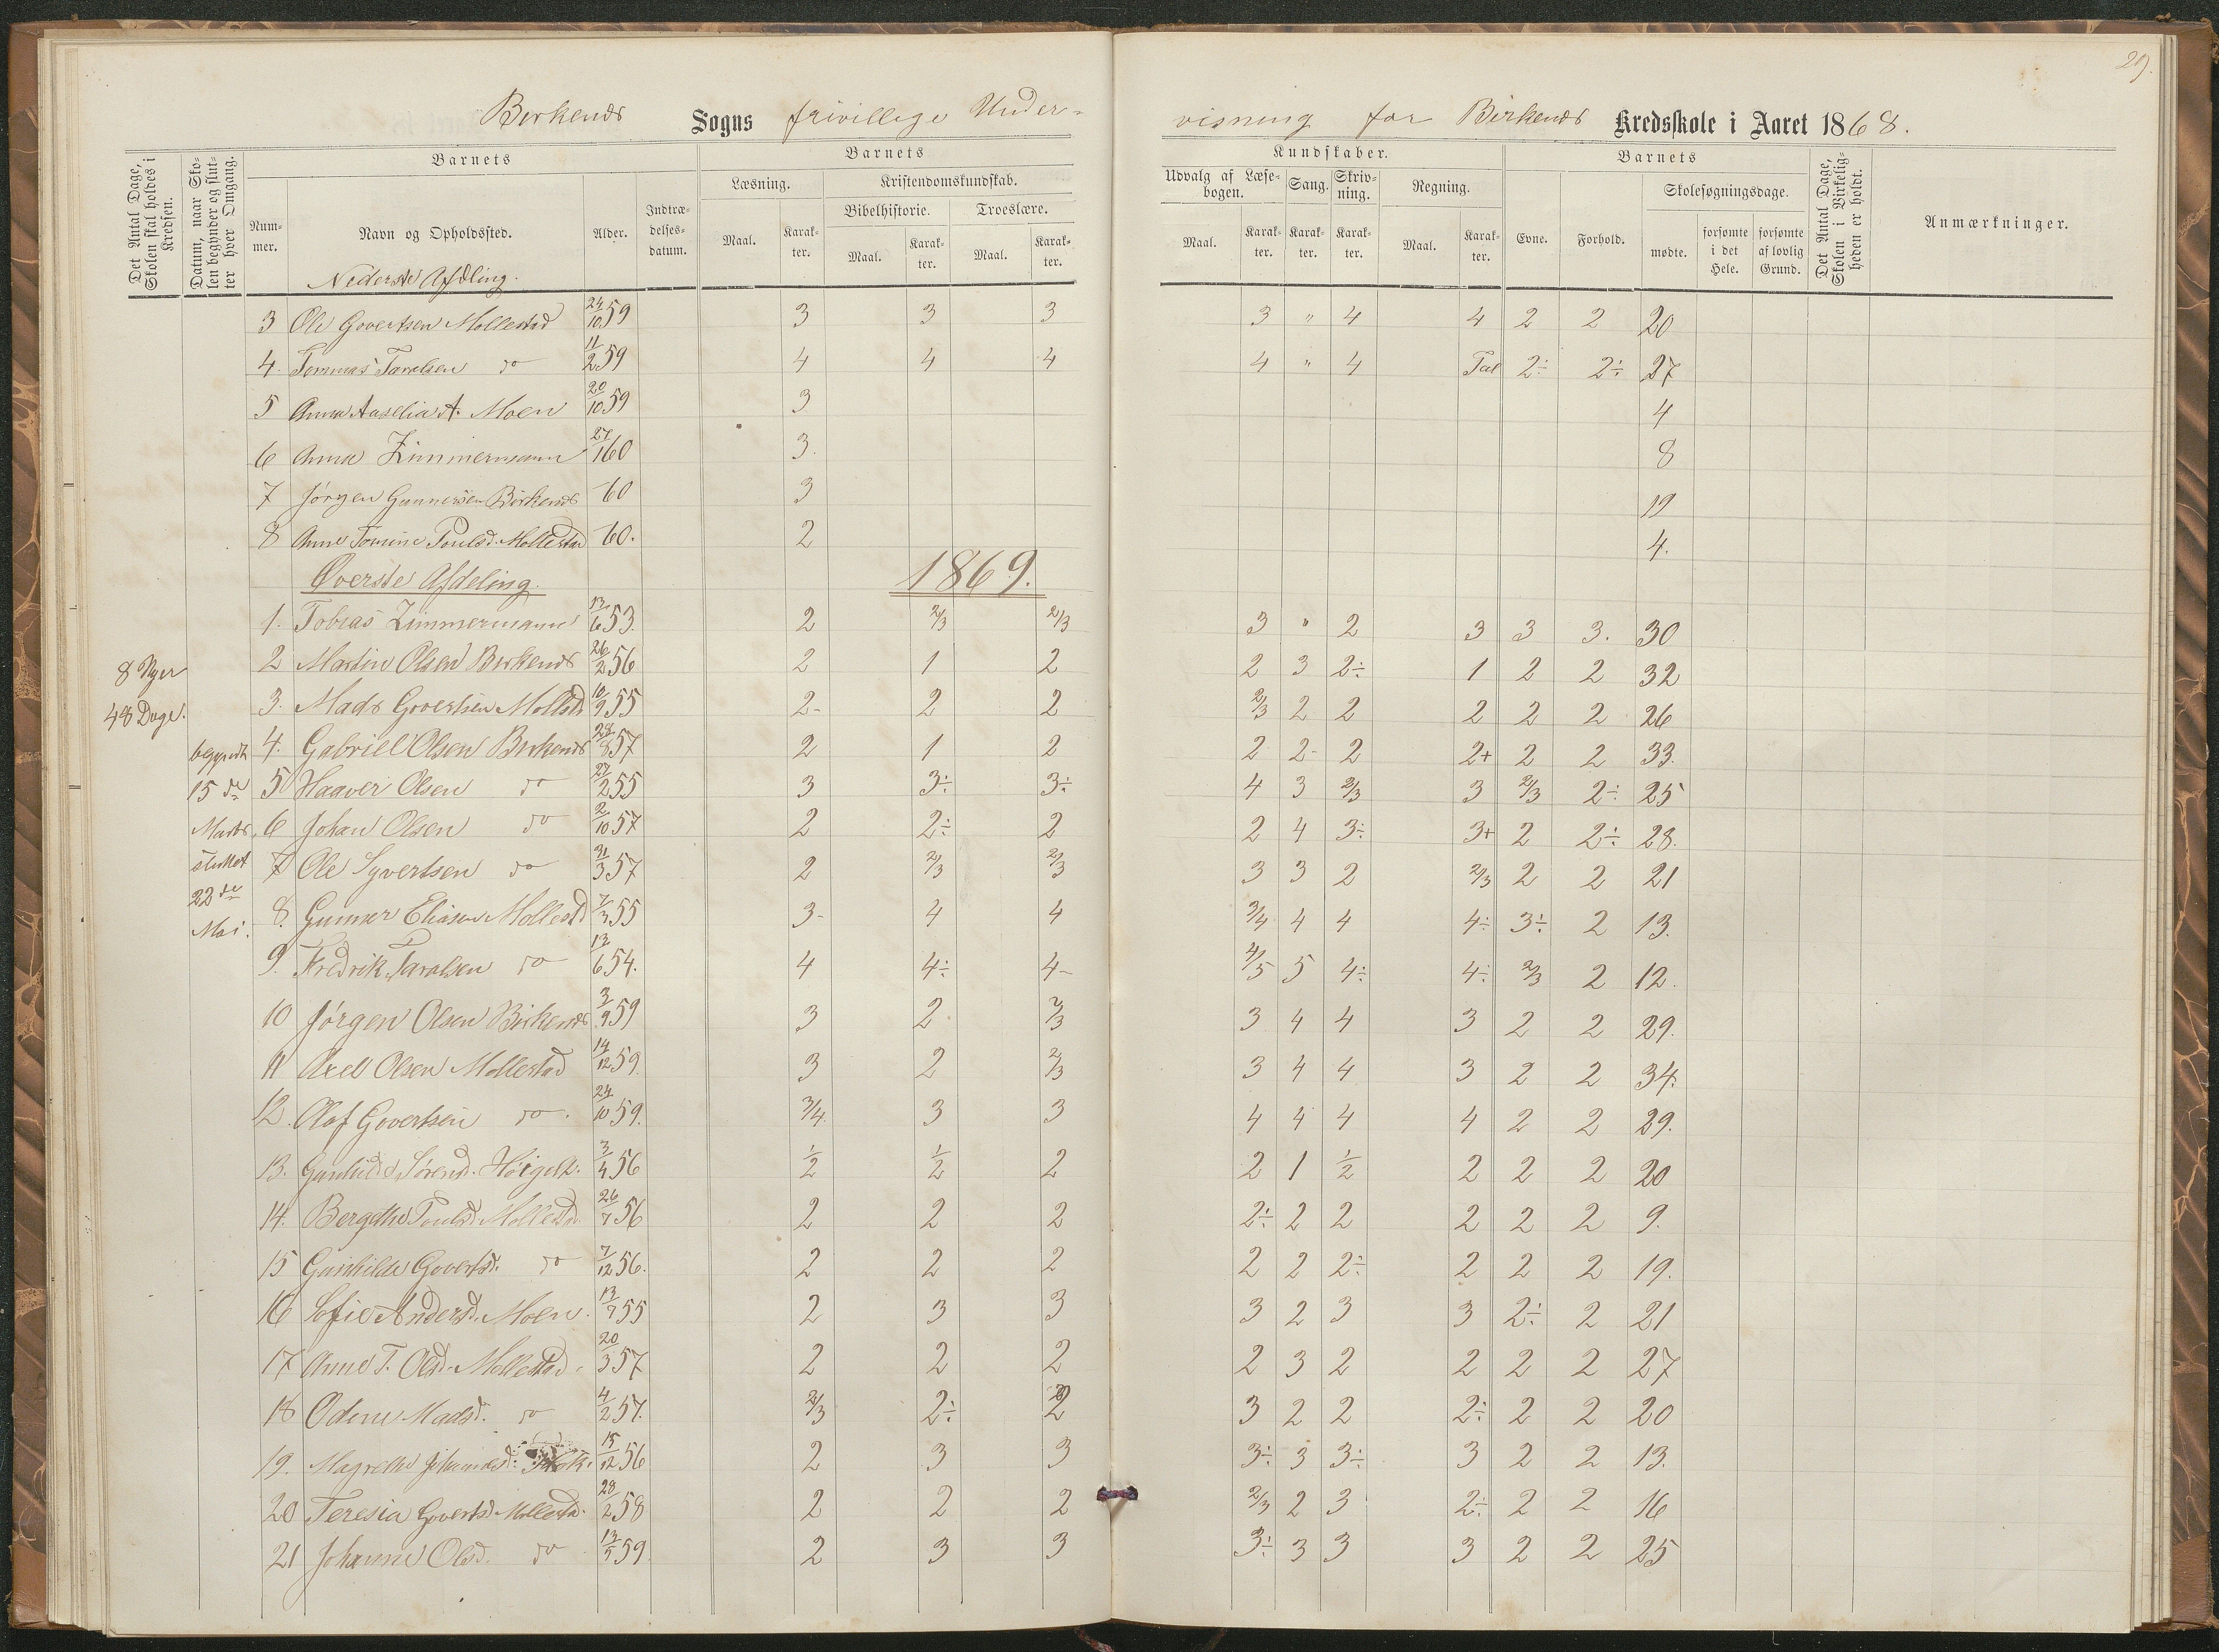 29.
Birkenes Sogns frivillige Under-
visning for Birkenes Kredsskole i Aaret 1868.
Det Antal Dage, Skolen skal holdes i Kredsen.
Datum, naar Skolen begynder og slutter hver Omgang.
Barnets
Nummer.
Navn og Opholdssted.
Alder.
Indtrædelsesdatum.
Barnets
Læsning.
Maal.
Karakter.
Kristendomskundskab.
Bibelhistorie.
Maal.
Karakter.
Troeslære.
Maal.
Karakter.
Kundskaber.
Udvalg af Læsebogen.
Maal.
Karakter.
Sang.
Karakter.
Skrivning.
Karakter.
Regning.
Maal.
Karakter.
Barnets
Evne.
Forhold.
Skolesøgningsdage.
mødte.
forsømte i det Hele.
forsømte af lovlig Grund.
Det Antal Dage, Skolen i Virkeligheden er holdt.
Anmærkninger.
Nederste Afdling.
3 Ole Govertsen Mollestad 24/10 59 3 3 3 3 " 4 4 2 2 20
4 Tommas Taralsen do 11/2 59 4 4 4 4 " 4 Tal 2÷ 2÷ 27
5 Anna Aaselia A. Moen 20/10 59 3 4
6 Anna Zimmermann 27/1 60 3. 8
7 Jørgen Gunnersen Birkenes 60 3 19
8 Anne Tomine Poulsd. Mollestad 60. 2 4.
Øverste Afdeling. 1869.
1. Tobias Zimmermann 13/6 53. 2 2/3 2/3 3 " 2 3 3 3. 30
2 Martin Olsen Birkenes 26/2 56 2 1 2 2 3 2÷ 1 2 2 32
8 Uger
48 Dage.
3. Mads Govertsen Mollestd 10/9 55 2- 2 2 2/3 2 2 2 2 2 26
4. Gabriel Olsen Birkenes 28/8 57 2 1 2 2 2- 2 2+ 2 2 33.
begyndt
15 de
Marts,
sluttet
22 de
Mai.
5 Haaver Olsen do 27/2 55 3 3÷ 3÷ 4 3 2/3 3 2/3 2÷ 25
6 Johan Olsen do 2/10 57 2 2÷ 2 2 4 3÷ 3+ 2 2÷ 28.
7 Ole Syvertsen do 31/3 57 2 2/3 2/3 3 3 2 2/3 2 2 21
8. Gunner Eliasen Mollestd 7/3 55 3- 4 4 3/4 4 4 4÷ 3÷ 2 13.
9. Fredrik Taralsen do 13/6 54. 4 4÷ 4- 4/5 5 4÷ 4÷ 2/3 2 12.
10 Jørgen Olsen Birkenes 3/9 59 3 2 2/3 3 4 4 3 2 2 29.
11 Axel Olsen Mollestad 14/12 59. 3 2 2/3 3 4 4 3 2 2 34.
12. Olaf Govertsen do. 24/10 59. 3/4 3 3 4 4 4 4 2 2 29.
13. Sørensd. 3/4 56 1/2 1/2 2 2 1 1/2 2 2 2 20
14. Bergethe Poulsd. Mollestd. 26/7 56 2 2 2 2÷ 2 2 2 2 2 9.
15 Gunhilde Govertsd. do 7/12 56. 2 2 2 2 2 2÷ 2 2 2 19.
16 Sofie Andersd. Moen. 13/7 55 2 3 3 3 2 3 3 2÷ 2 21
17 Anne T. Olsd. Mollestad. 20/3 57 2 2 2 2 3 2 2 2 2 27
18 Odine Madsd. do 4/2 57. 2/3 2÷ 2 3 2 2 2÷ 2 2 20
19. Magrethe Johannesd. 15/12 56 2 3 3 3÷ 3 3÷ 3 2 2 13.
20 Teresia Govertsd. Mollestad. 28/2 58 2 2 2 2/3 2 3 2÷ 2 2 16
21 Johanne Olsd. do 13/5 59. 2 3 3 3÷ 3 3 3 2 2 25